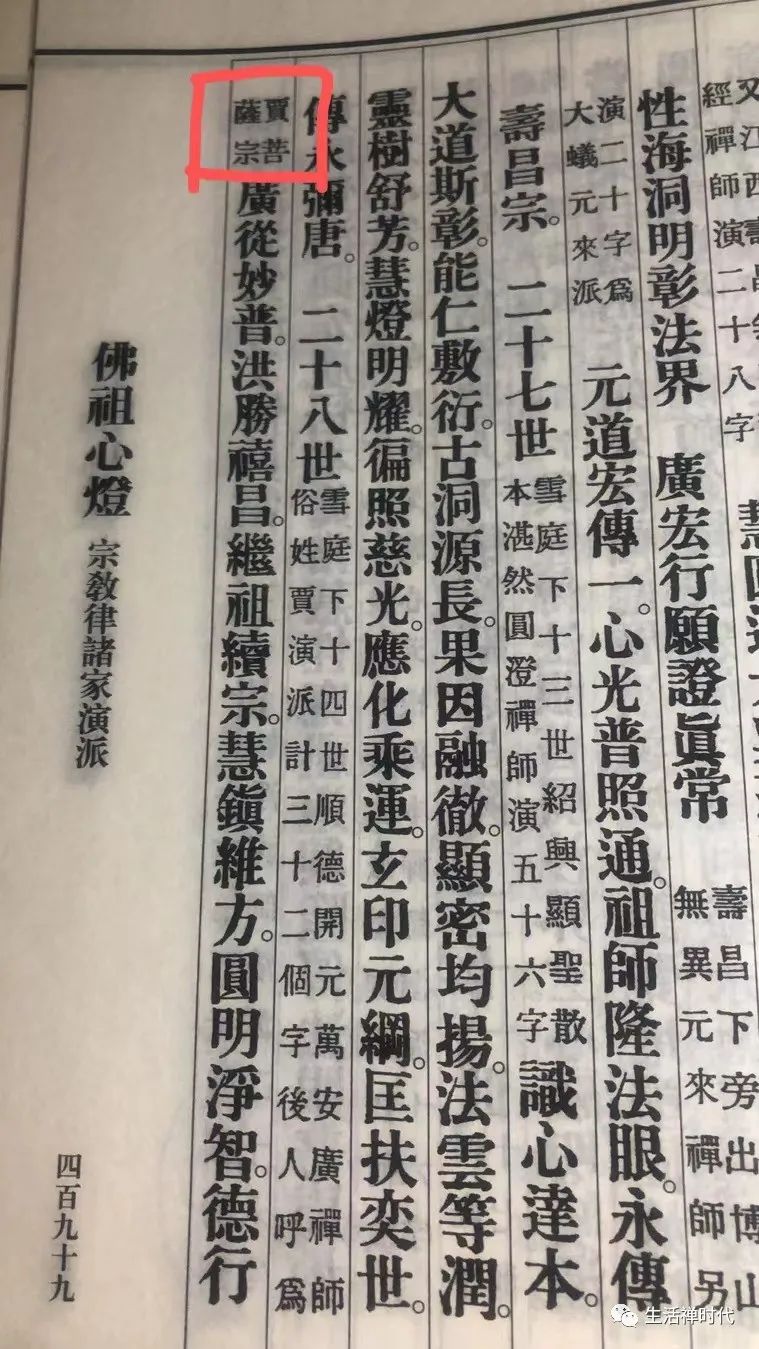 又江西壽昌
經禪師演二十八字
性海洞明彰法界　廣宏行願證眞常　壽昌下旁出博山
無異元來禪師另
演二十字爲
大蟻元來派　元道宏傳一。心光普照通。祖師隆法眼。永傳
壽昌宗。　二十七世　雪庭下十三世紹興顯聖散
本湛然圓澄禪師演五十六字　識心達本。
大道斯彰。能仁敷衍。古洞源長。果因融徹。顯密均揚。法雲等潤。
靈樹舒芳。慧燈明耀。徧照慈光。應化乘運。玄印元綱。匡扶奕世。
傳永彌唐。　二十八世　雪庭下十四世順德開元萬安廣禪師
俗姓賈演派計三十二個字後人呼爲
賈菩
薩宗　廣從妙普。洪勝禧昌。繼祖續宗。慧鎭維方。圓明淨智。德行
佛祖心燈　宗敎律諸家演派
四百九十九
生活禅时代